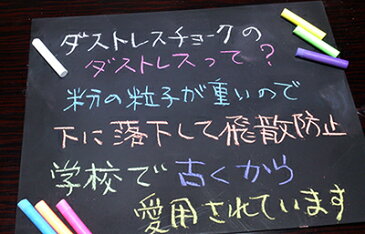 ダストレスチョークの
ダストレスって?
粉の粒子が重いので
下に落下して飛散防止
学校で古くから
愛用されています